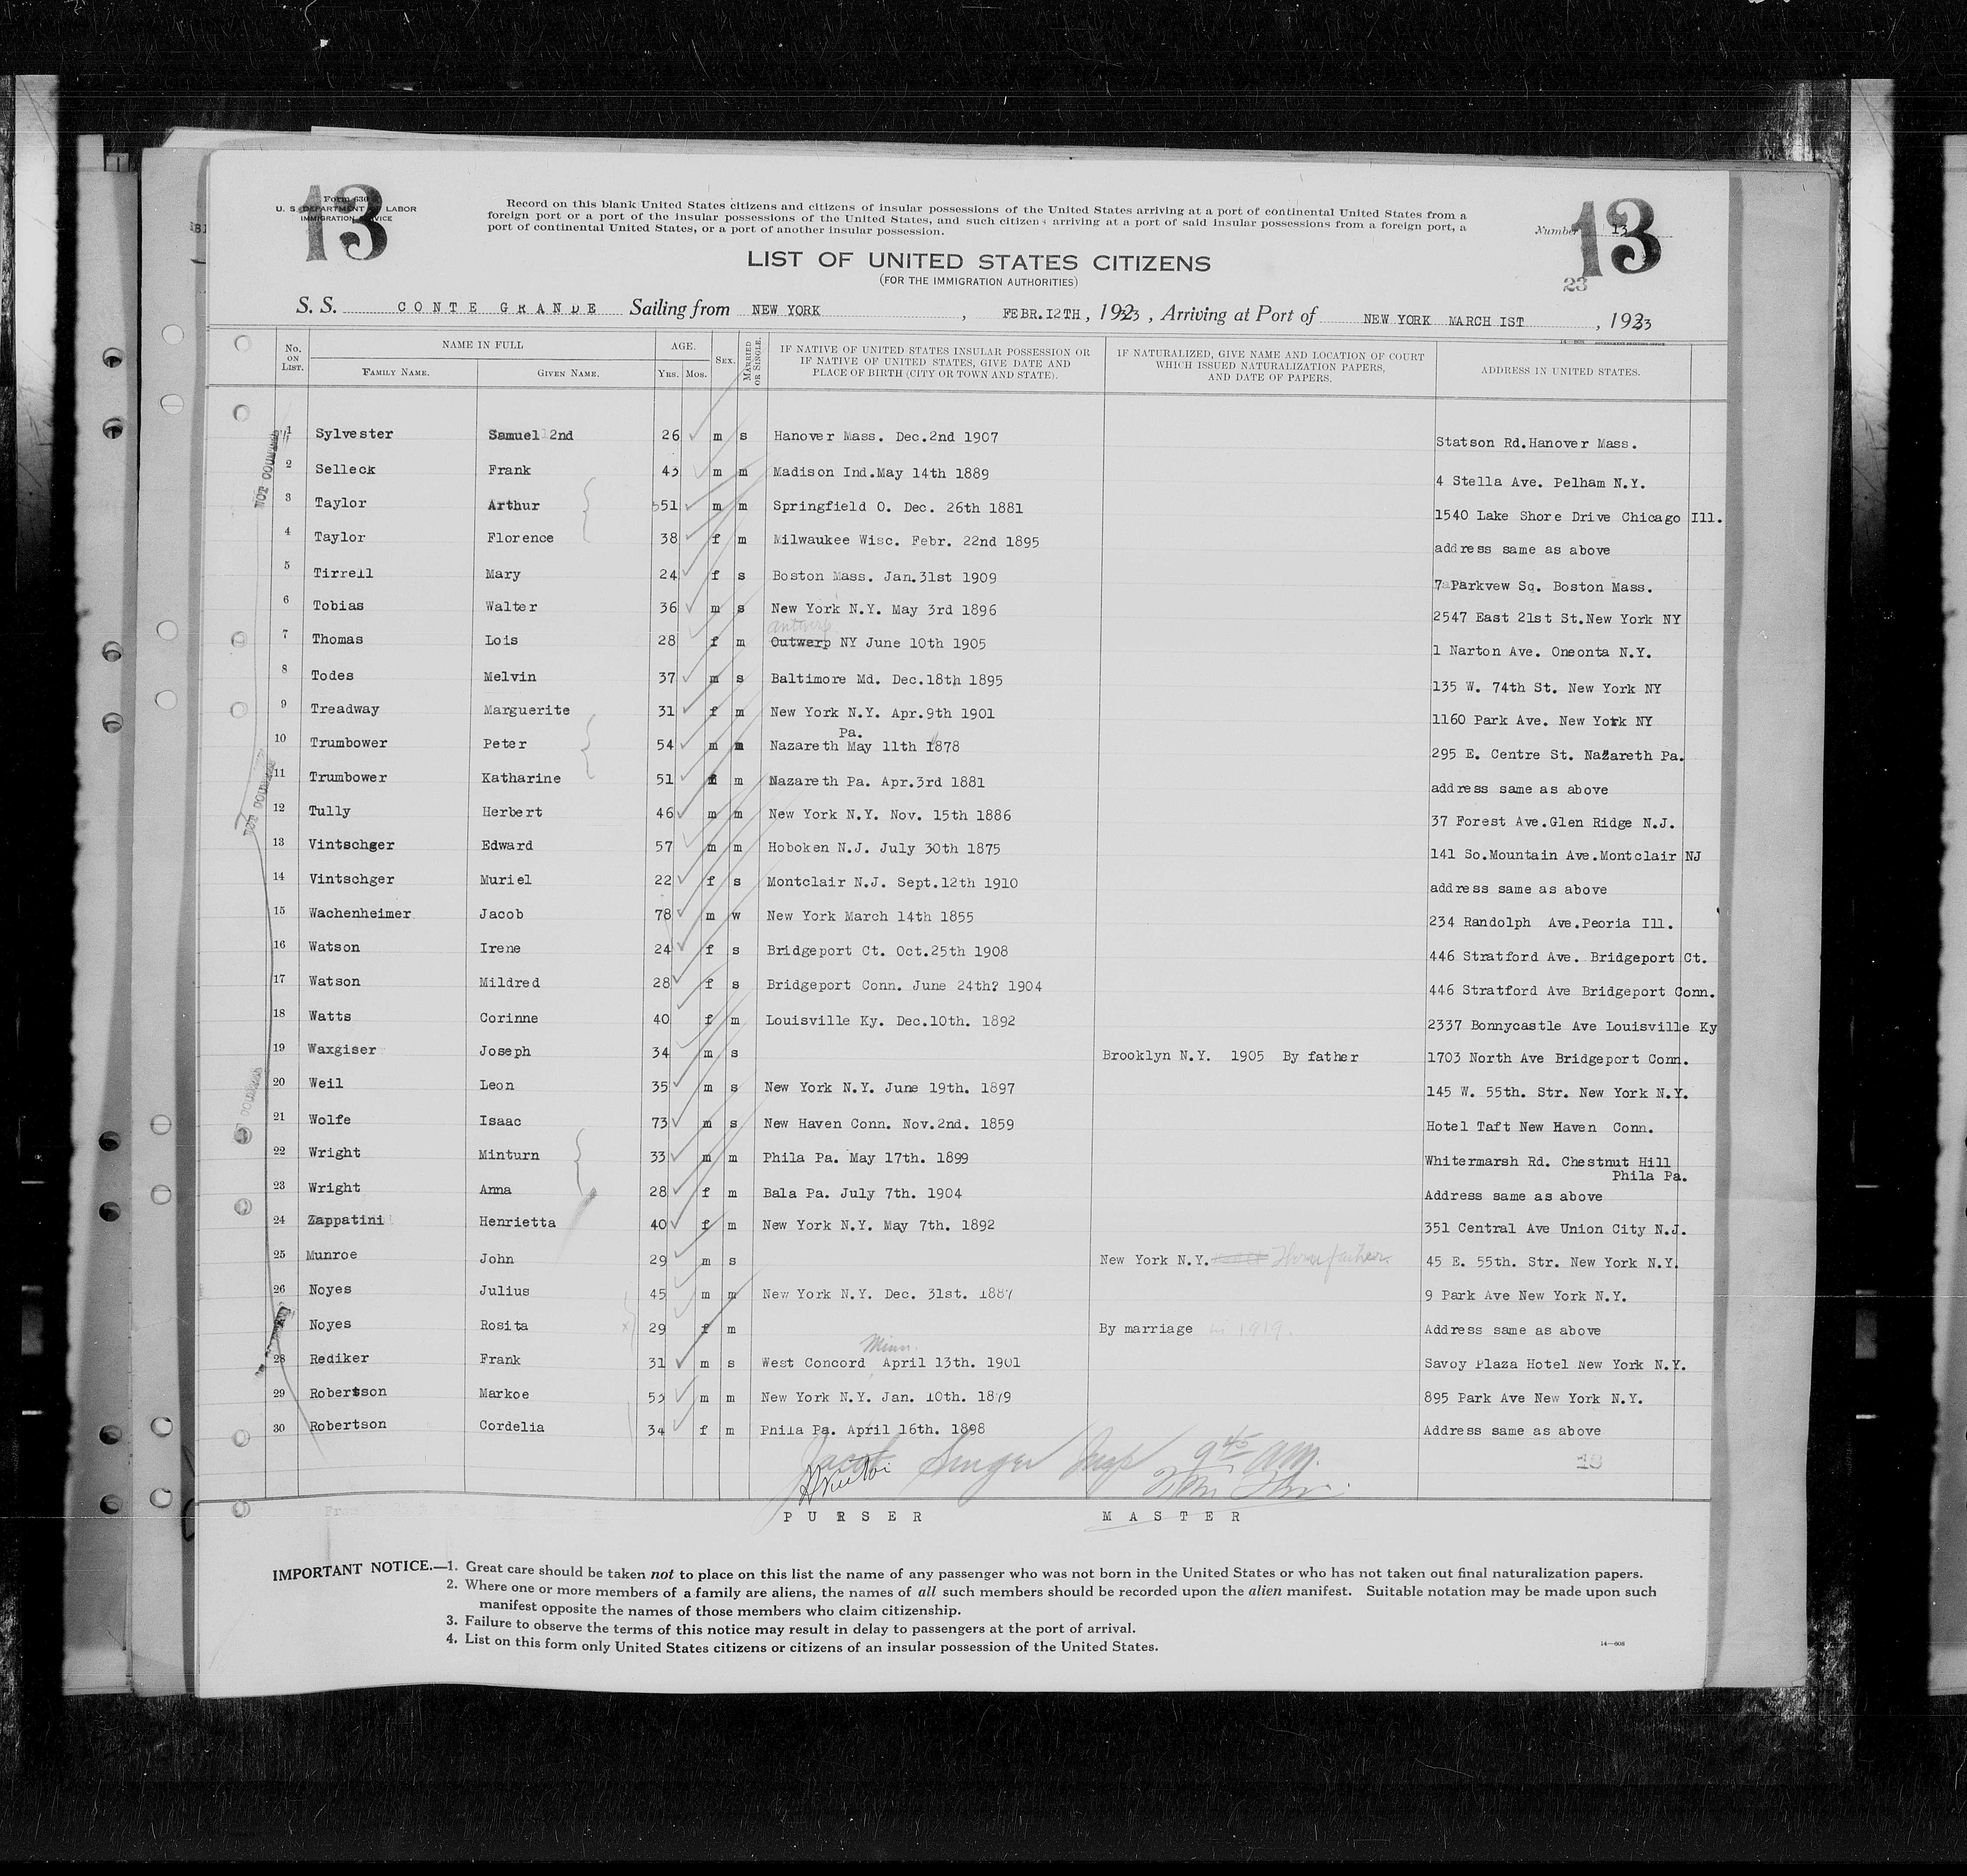 13
Form 630
U. S. DEPARTMENT OF LABOR
IMMIGRATION SERVICE
Record on this blank United States citizens and citizens of insular possessions of the United States arriving at a port of continental United States from a
foreign port or a port of the insular possessions of the United States, and such citizens arriving at a port of said insular possessions from a foreign port, a
port of continental United States, or a port of another insular possession.
Number 13
13
23
LIST OF UNITED STATES CITIZENS
(FOR THE IMMIGRATION AUTHORITIES)
S. S. CONTE GRANDE Sailing from NEW YORK , FEBR.I2TH , 1933 , Arriving at Port of NEW YORK MARCH IST , 1933
No. ON LIST. NAME IN FULL FAMILY NAME. GIVEN NAME. AGE. YRS. MOS. SEX. MARRIED OR SINGLE. IF NATIVE OF UNITED STATES INSULAR POSSESSION OR IF NATIVE OF UNITED STATES, GIVE DATE AND PLACE OF BIRTH (CITY OR TOWN AND STATE). IF NATURALIZED, GIVE NAME AND LOCATION OF COURT WHICH ISSUED NATURALIZATION PAPERS, AND DATE OF PAPERS. ADDRESS IN UNITED STATES.
1 Sylvester Samuel 2nd 26 m s Hanover Mass. Dec.2nd 1907 Statson Rd.Hanover Mass.
2 Selleck Frank 43 m m Madison Ind.May 14th 1889 4 Stella Ave. Pelham N.Y.
3 Taylor Arthur 51 m m Springfield O. Dec. 26th 1881 1540 Lake Shore Drive Chicago Ill.
4 Taylor Florence 38 f m Milwaukee Wisc. Febr. 22nd 1895 address same as above
5 Tirrell Mary 24 f s Boston Mass. Jan.31st 1909 7 Parkvew Sq. Boston Mass.
6 Tobias Walter 36 m s New York N.Y. May 3rd 1896 2547 East 21st St.New York NY
antwerp
7 Thomas Lois 28 f m Outwerp NY June 10th 1905 1 Narton Ave. Oneonta N.Y.
8 Todes Melvin 37 m s Baltimore Md. Dec.18th 1895 135 W. 74th St. New York NY
9 Treadway Marguerite 31 f m New York N.Y. Apr.9th 1901 1160 Park Ave. New York NY
Pa.
10 Trumbower Peter 54 m m Nazareth May 11th 1878 295 E. Centre St. Nazareth Pa.
11 Trumbower Katharine 51 f m Nazareth Pa. Apr.3rd 1881 address same as above
12 Tully Herbert 46 m m New York N.Y. Nov. 15th 1886 37 Forest Ave.Glen Ridge N.J.
13 Vintschger Edward 57 m m Hoboken N.J. July 30th 1875 141 So.Mountain Ave.Montclair NJ
14 Vintschger Muriel 22 f s Montclair N.J. Sept.12th 1910 address same as above
15 Wachenheimer Jacob 78 m w New York March 14th 1855 234 Randolph Ave.Peoria Ill.
16 Watson Irene 24 f s Bridgeport Ct. Oct.25th 1908 446 Stratford Ave. Bridgeport Ct.
17 Watson Mildred 28 f s Bridgeport Conn. June 24th? 1904 446 Stratford Ave Bridgeport Conn.
18 Watts Corinne 40 f m Louisville Ky. Dec.10th. 1892 2337 Bonnycastle Ave Louisville Ky
19 Waxgiser Joseph 34 m s Brooklyn N.Y. 1905 By father 1703 North Ave Bridgeport Conn.
20 Weil Leon 35 m s New York N.Y. June 19th. 1897 145 W. 55th. Str. New York N.Y.
21 Wolfe Isaac 73 m s New Haven Conn. Nov.2nd. 1859 Hotel Taft New Haven Conn.
22 Wright Minturn 33 m m Phila Pa. May 17th. 1899 Whitermarsh Rd. Chestnut Hill
Phila Pa.
23 Wright Anna 28 f m Bala Pa. July 7th. 1904 Address same as above
24 Zappatini Henrietta 40 f m New York N.Y. May 7th. 1892 351 Central Ave Union City N.J.
25 Munroe John 29 m s New York N.Y. Thru father. 45 E. 55th. Str. New York N.Y.
26 Noyes Julius 45 m m New York N.Y. Dec. 31st. 1887 9 Park Ave New York N.Y.
Noyes Rosita 29 f m By marriage in 1919. Address same as above
Minn.
28 Rediker Frank 31 m s West Concord April 13th. 1901 Savoy Plaza Hotel New York N.Y.
29 Robertson Markoe 53 m m New York N.Y. Jan. 10th. 1879 895 Park Ave New York N.Y.
30 Robertson Cordelia 34 f m Phila Pa. April 16th. 1898 Address same as above
NOT COUNTED
Jacob Singer Insp 9 45 AM.
18
PURSER MASTER
IMPORTANT NOTICE.—1. Great care should be taken not to place on this list the name of any passenger who was not born in the United States or who has not taken out final naturalization papers.
2. Where one or more members of a family are aliens, the names of all such members should be recorded upon the alien manifest. Suitable notation may be made upon such
manifest opposite the names of those members who claim citizenship.
3. Failure to observe the terms of this notice may result in delay to passengers at the port of arrival.
4. List on this form only United States citizens or citizens of an insular possession of the United States.
14—608